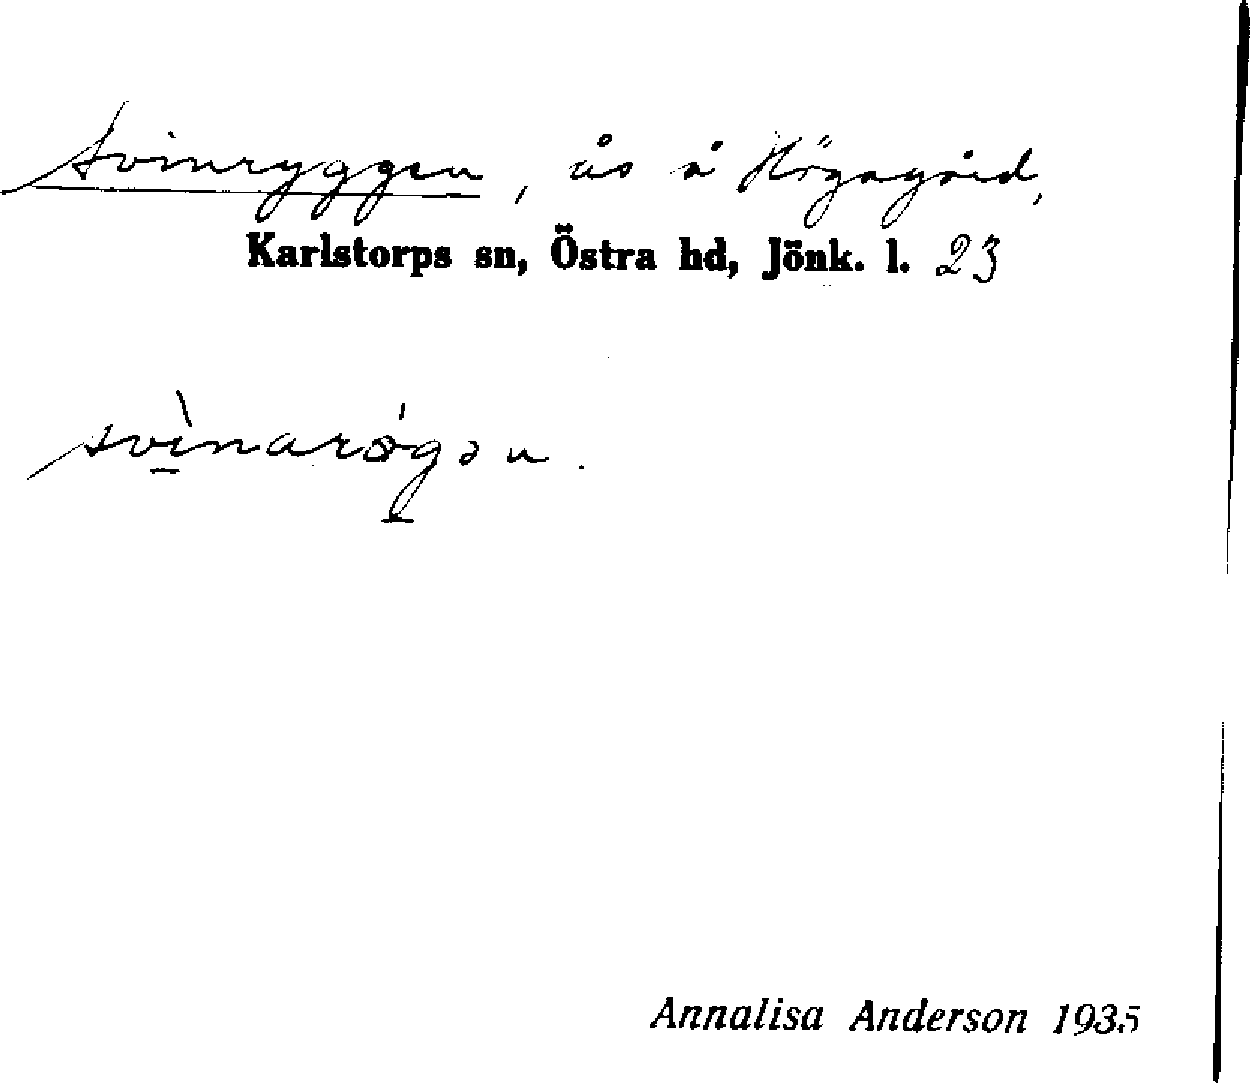 Svinryggen, ås å Högagärd,
Karlstorps sn, Östra hd, Jönk. l. 23
svinarøgən.
Annalisa Anderson 1935